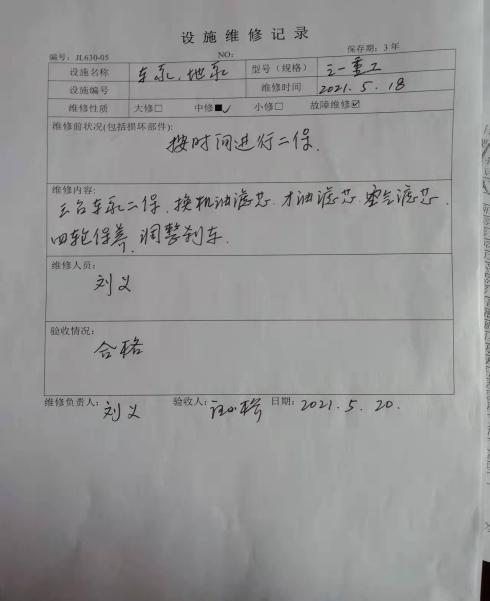 设施维修记录
编号：JL630-05 NO: 保存期：3 年
设施名称 车泵、地泵 型号（规格） 三一重工
设施编号 维修时间 2021.5.18
维修性质 大修□ 中修■✓ 小修□ 故障维修☑
维修前状况(包括损坏部件):
按时间进行二保.
维修内容:
三台车泵二保.换机油滤芯.才油滤芯.空气滤芯.
四轮保养、调整刹车.
维修人员:
刘义
验收情况:
合格
维修负责人: 刘义 验收人: 日期: 2021.5.20.